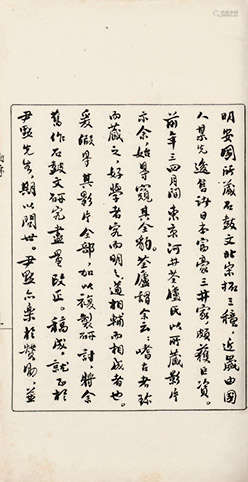 明安國所藏石鼓文北宋拓三種，近歲由国
人某先後售諸日本富豪三井家，頗獲巨資。
前年三四月間東京河井荃廬氏以所藏影片
示余，始得窺其全豹。荃廬語余云：嗜古者弥
而藏之，好學者究而明之，道相輔而相成者也。
爰假得其影片全部，加以複製研討，將余
舊作石鼓文研究盡量改正。稿成，就正於
尹默先生，期以問世。尹默亦樂於贊助，並